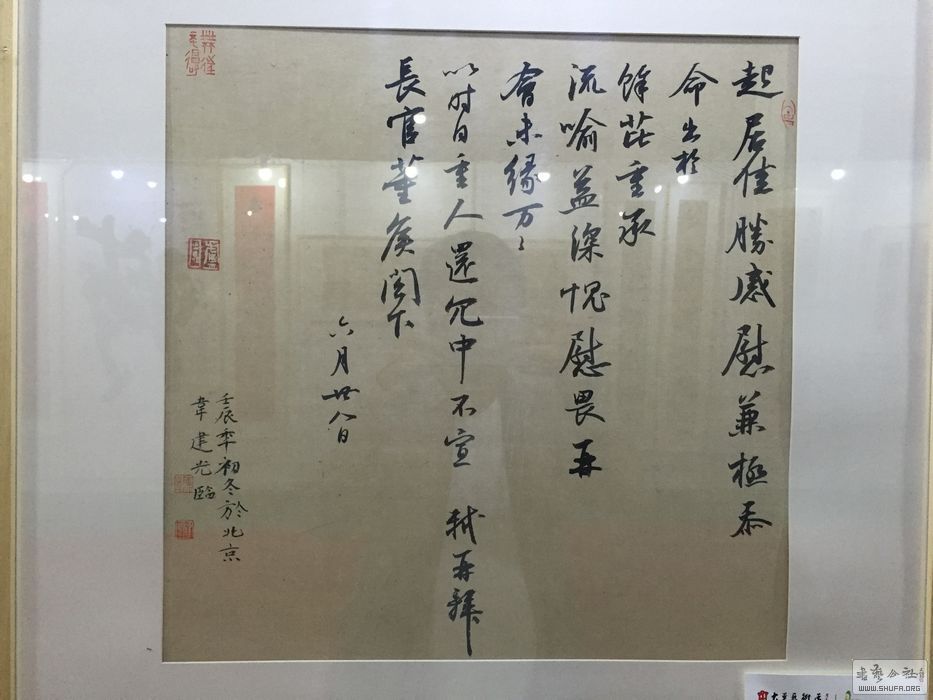 起居佳勝感慰兼極忝
命出於
餘芘重承
流喻益深愧慰畏再
會未緣万々
以时自重人還冗中不宣 軾再拜
長官董侯閣下
六月廿八日
壬辰年初冬於北京
韋建光臨
書藝公社
WWW.SHUFA.ORG